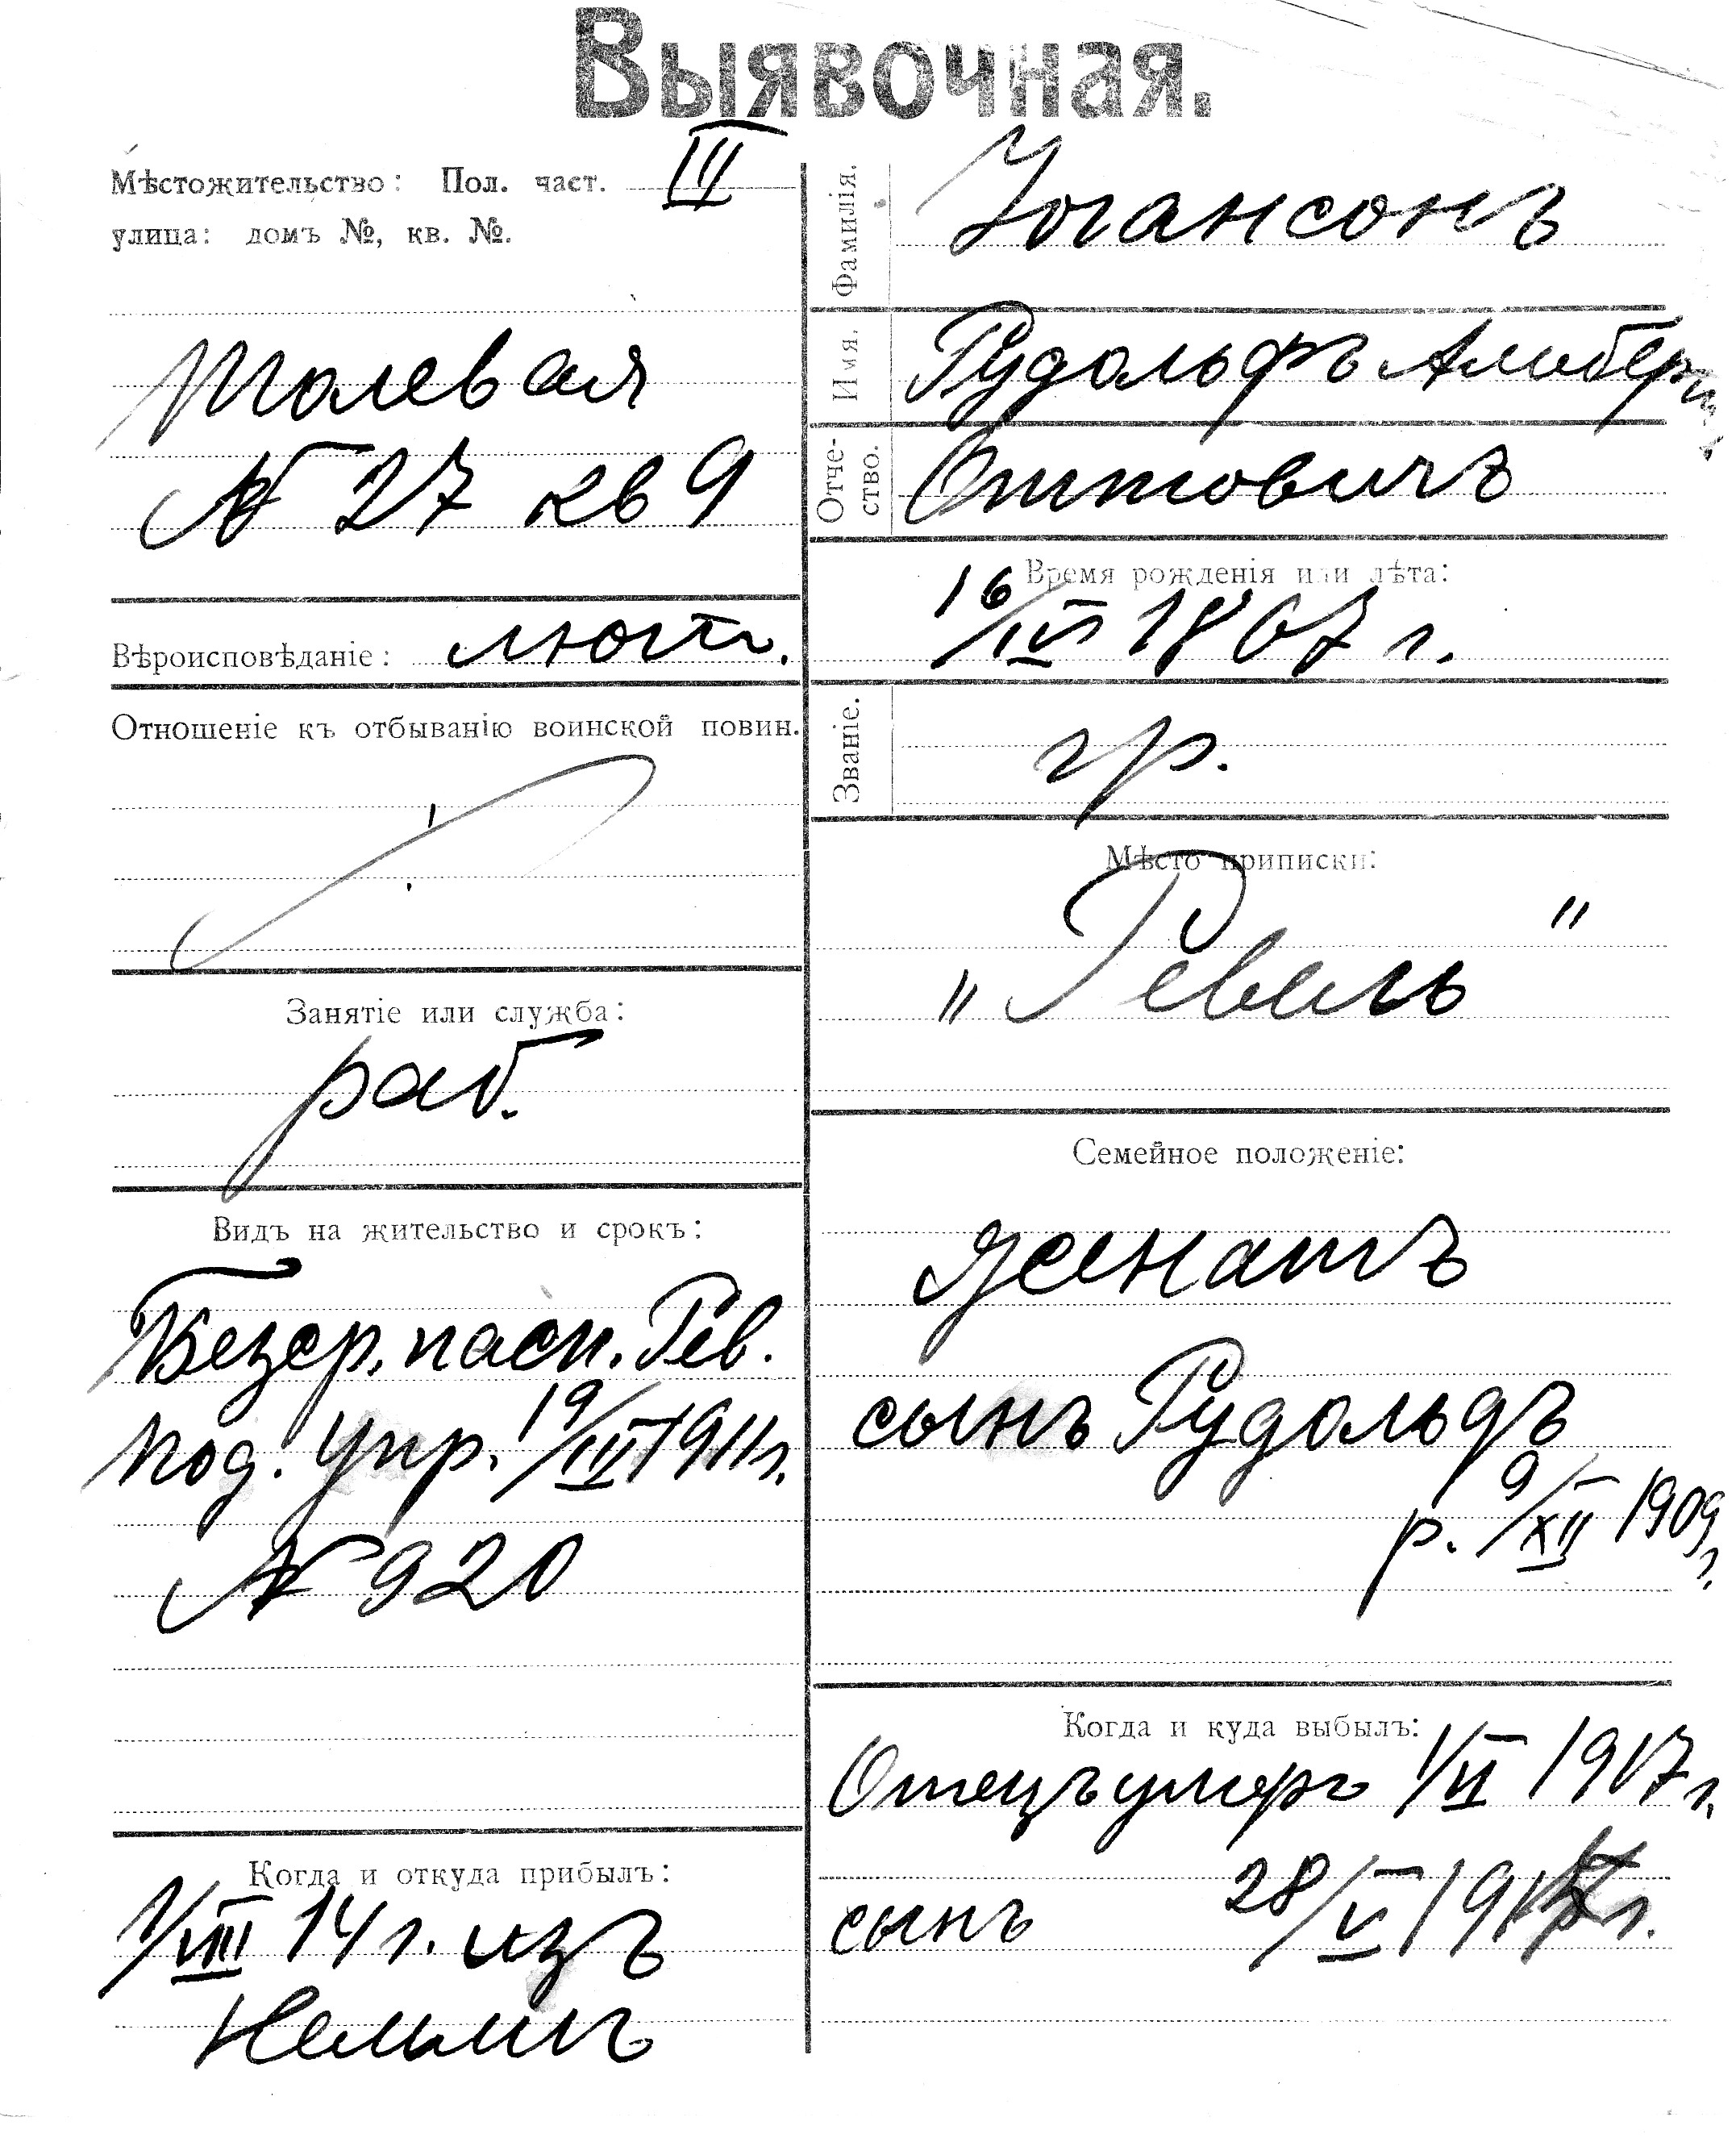 Выявочная.
Мѣстожительство: Пол. част. III
улица: домъ №, кв. №.
Полевая
№ 27 кв 9
Вѣроисповѣданіе: лют.
Отношеніе къ отбыванію воинской повин.
Занятіе или служба:
раб.
Видъ на жительство и срокъ:
Безср. пасп. Рев.
под. упр. 19/III 1911 г.
№ 920
Когда и откуда прибылъ:
1/VIII 14 г. изъ
Фамилія. Іогансонъ
Имя. Рудольфъ Альбертъ
Отчество. Оттовичъ
Время рожденія или лѣта:
16/IV 1867 г.
Званіе. гр.
Мѣсто приписки:
"Ревель"
Семейное положеніе:
женатъ
сынъ Рудольдъ
р. 9/XII 1909 г.
Когда и куда выбылъ:
Отецъ умеръ 1/VI 1917 г.
сынъ 28/V 1917 г.